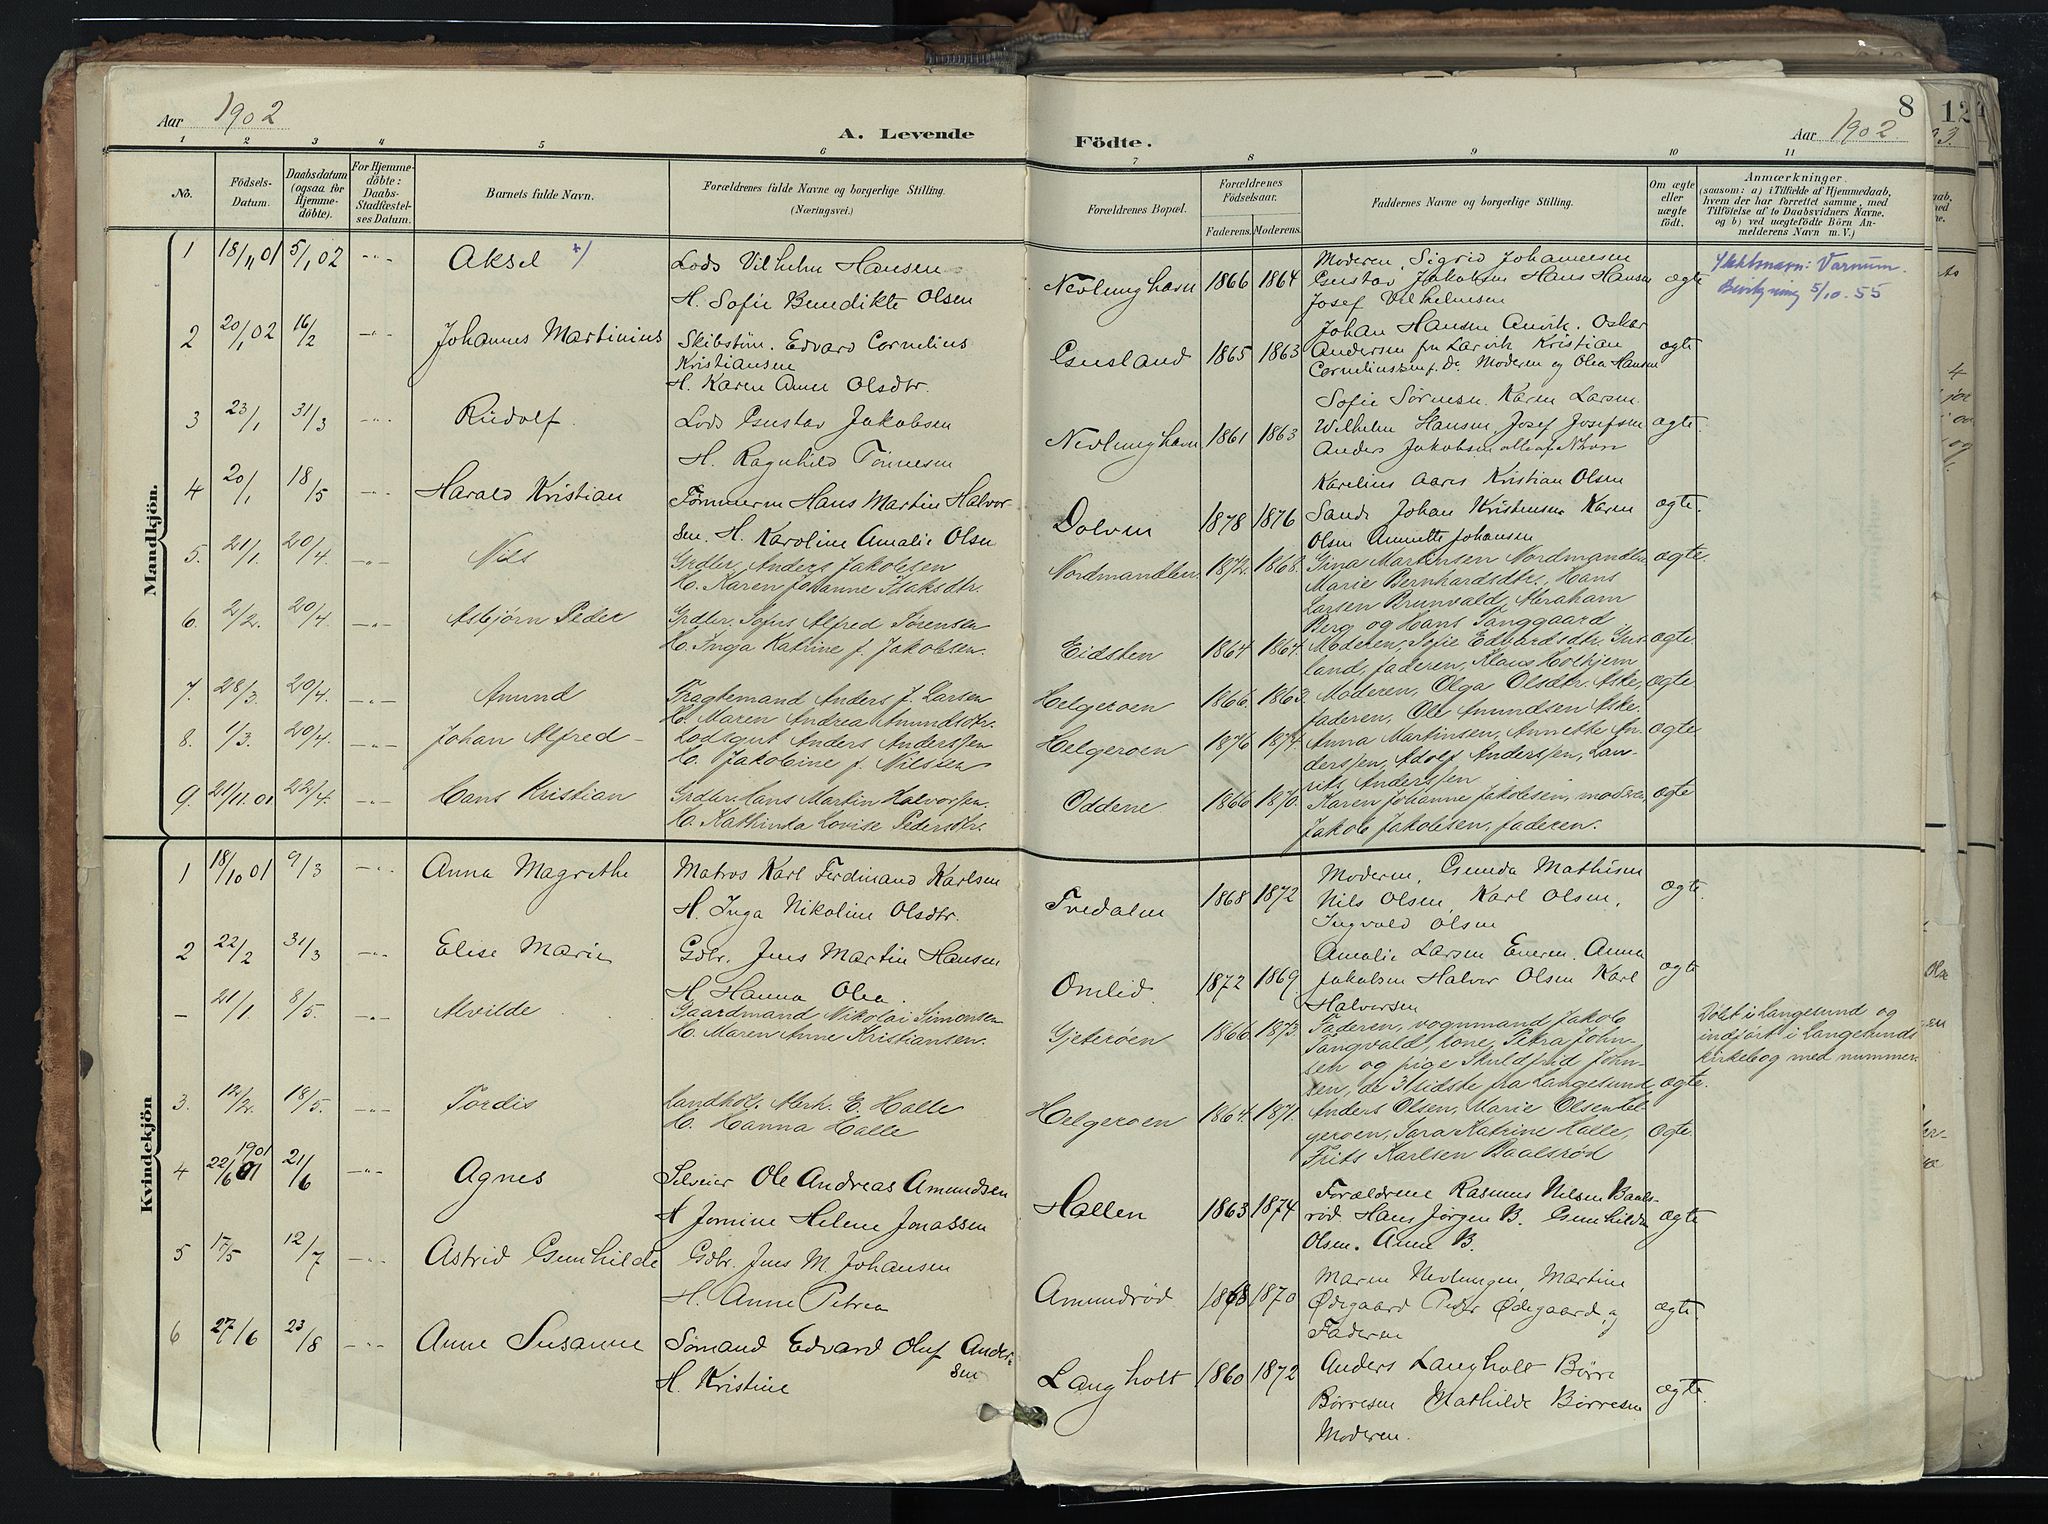 Aar 1902
A. Levende
Födte.
Aar 1902
8
12
1 2 3 4 5 6 7 8 9 10 11
No. Födsels-Datum. Daabsdatum (ogsaa for Hjemmedöbte). For Hjemmedöbte: Daabs-Stadfæstelses Datum. Barnets fulde Navn. Forældrenes fulde Navne og borgerlige Stilling. (Næringsvei.) Forældrenes Bopæl. Forældrenes Födselsaar. Faderens. Moderens. Faddernes Navne og borgerlige Stilling. Om ægte eller uægte födt. Anmærkninger. (saasom: a) i Tilfælde af Hjemmedaab, hvem der har forrettet samme, med Tilföielse af to Daabsvidners Navne, og b) ved uegtefödte Börn Anmelderens Navn m. V.)
Mandkjön.
1 18/11 01 5/1 02 -"- Aksel +/ Lods Vilhelm Hansen
H. Sofie Benedikte Olsen
Nevlunghavn 1866 1864 Moderen, Sigrid Johannesen
Gustav Jakobsen Hans Hansen
Josef Vilhelmsen
ægte
Slektsnavn: Varnum.
Bevilgning 5/10.55
2 20/1 02 16/2 -"- Johannes Martinius Skibstøm. Edvard Cornelius
Kristiansen
H. Karen Anne Olsdtr.
Gusland 1865 1863 Johan Hansen Anvik. Oskar
Andersen fra Larvik Kristian
Corneliussen f. Do Moderen og Olea Hansen
ægte
3 23/1 31/3 -"- Rudolf. Lods Gustav Jakobsen
H. Ragnhild Tønnesen
Nevlunghavn 1861 1863 Sofie Sørensen. Karen Larsen
Wilhelm Hansen, Josef Josefsen
Anders Jakobsen alle af Nhavn
ægte.
4 20/1 18/5 -"- Harald Kristian Tømmerm Hans Martin Halvor-
sen. H. Karoline Amalie Olsen
Dolven 1878 1876 Karelius Aares Kristian Olsen
Sande Johan Kristensen Karen
Olsen Annette Johansen
ægte.
5. 21/1. 20/4. -"- Nils Grdbr. Anders Jakobsen
H. Karen Johanne Isaksdtr.
Nordmandlen 1872. 1868. Gina Martinsen Nordmandlen
Marie Bernhardsdtr., Hans
Larsen Brunvald, Abraham
Berg og Hans Tanggaard
ægte.
6. 2/2. 20/4. -"- Asbjørn Peder Grdbr. Sofus Alfred Sørensen
H. Inga Katrine f. Jakobsen.
Eidsten 1864 1864. Moderen, Sofie Edvardsdtr. Gus-
land, faderen, Klaus Holhjem
ægte.
7. 28/3. 20/4. -"- Amund Fragtemand Anders J. Larsen
H. Maren Andrea Amundsdtr.
Helgeroen 1866. 1863. Moderen, Olga Olsdtr. Aske,
faderen, Ole Amundsen Aske.
ægte.
8. 1/3. 20/4. -"- Johan Alfred - Lodsgut Anders Anderssen
H. Jakobine f. Nilssen
Helgeroen 1876 1874. Anna Martinsen, Annette An-
derssen, Adolf Anderssen, Lau-
rits Anderssen
ægte.
9. 21/11.01 22/4. -"- Hans Kristian Grdbr. Hans Martin Halvorsen.
H. Kathinka Lovise Pedersdtr.
Oddene 1866 1870. Karen Johanne Jakobsen, moderen,
Jakob Jakobsen, faderen.
ægte
Kvindekjön
1 18/10 01 9/3 -"- Anna Magrethe Matros Karl Ferdinand Karlsen
H. Inga Nikoline Olsdtr.
Fredalen 1868 1872 Moderen, Gunda Mathisen
Nils Olsen, Karl Olsen,
Ingvald Olsen
ægte.
2 22/2 31/3 -"- Elise Marie Gdbr. Jens Martin Hansen
H Hanna Olea.
Omlid. 1872 1869. Amalie Larsen Eneren. Anna
Jakobsen Halvor Olsen Karl
Halvorsen
ægte
- 21/1. 8/5. -"- Alvilde Gaardmand Nikolai Simonsen
H. Maren Anne Kristiansen.
Gjeterøen 1866 1873. Faderen, vognmand Jakob
Tangvald, kone, Petra John-
sen og pige Skuldfrid John-
sen, de 3 sidste fra Langesund
ægte.
Døbt i Langesund og
indført i Langesunds
kirkebog med nummer.
3. 12/2. 18/5. -"- Tordis Landhdl. Abrh. E. Halle
H. Hanna Halle
Helgeroen 1864. 1871. Anders Olsen, Marie Olsen Hel-
geroen, Sara Katrine Halle,
Frits Karlsen Baalsrød
ægte.
4 22/6 1901 21/6 -"- Agnes Selveier Ole Andreas Amundsen
H Jornine Helene Jonassen
Hallen 1863 1874 Forældrene Rasmus Nilsen Baals-
rød. Hans Jørgen B. Gunhilda
Olsen. Anne B.
ægte
5 17/5 12/7 -"- Astrid Gunhilde Gdbr. Jens M. Johansen
H. Anne Petrea
Amundrød 1868 1870 Maren Nevlungen, Martine
Ødegaard Peder Ødegaard og
Faderen
ægte.
6 27/6 23/8 -"- Anne Susanne Sømand Edvard Oluf Ander-
sen
H. Kristine
Langholt 1860 1872 Anders Langholt Børre
Børresen Mathilde Børresen
Moderen.
ægte.